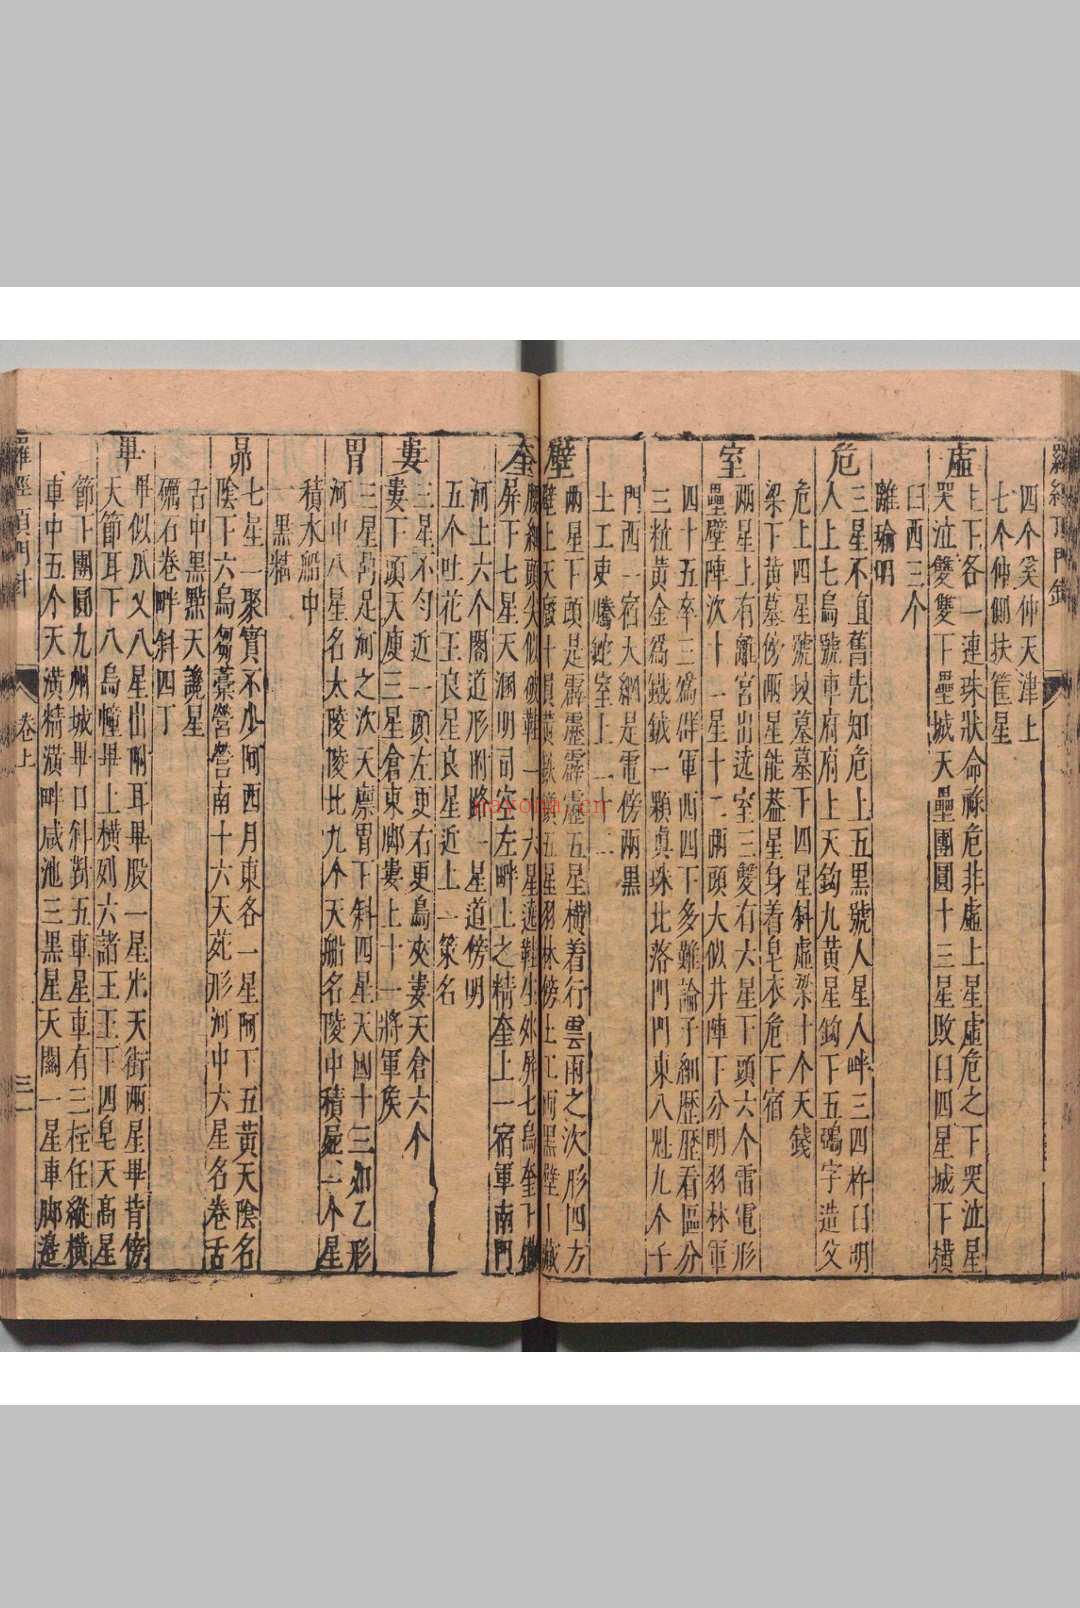 羅經頂門針
四个奚仲天津上
七个仲側扶筐星
虛
上下各一連珠狀命祿危非虛上星虛危之下哭泣星
哭泣雙雙下壘城天壘團圓十三星敗臼四星城下橫
臼西三个
離瑜明
危
三星不直舊先知危上五黑號人星人畔三四杵臼明
人上七烏號車府府上天鈎九黃星鈎下五鵶字造父
危上四星號坟墓墓下四星斜虛梁十个天錢
梁下黃墓傍兩星能葢星身着皂衣危下宿
室
兩星上有離宮出遶室三雙有六星下頭六个雷電形
壘壁陣次十一星十二兩頭大似井陣下分明羽林軍
四十五卒三爲群軍西四下多難論子細歷歷看區分
三粒黃金爲鐵鉞一顆眞珠北落門門東八魁九个子
門西一宿天綱是電傍兩黑
土工吏騰蛇室上二十二
壁
兩星下頭是霹靂霹靂五星橫着行雲雨之次形四方
壁上天廐十圓黃鈇鑕五星羽林傍土工兩黑壁下藏
奎
腰細頭尖似破鞋一十六星遶鞋生外屏七烏奎下橫
屏下七星天溷明司空左畔土之精奎上一宿軍南門
河上六个閣道形附路一星道傍明
五个吐花王良星良星近上一策名
婁
三星不勻近一頭左更右更烏夾婁天倉六个
婁下頭天庾三星倉東脚婁上十一將軍矦
胃
三星鼎足河之次天廩胃下斜四星天囷十三如乙形
河中八星名大陵陵北九个天船名陵中積屍一个星
積水船中
一黑精
昴
七星一聚實不少阿西月東各一星阿下五黃天陰名
陰下六烏芻藁營營南十六天苑形河中六星名卷舌
古中黑點天讒星
礪石卷畔斜四丁
畢
畢似爪义八星出附耳畢股一星光天街兩星畢背傍
天節耳下八烏幢畢上橫列六諸王王下四皂天高星
節下團圓九州城畢口斜對五車星車有三柱任縱橫
車中五个天潢精潢畔咸池三黑星天關一星車脚邉
羅經頂門針
卷上
三一
nayona.cn